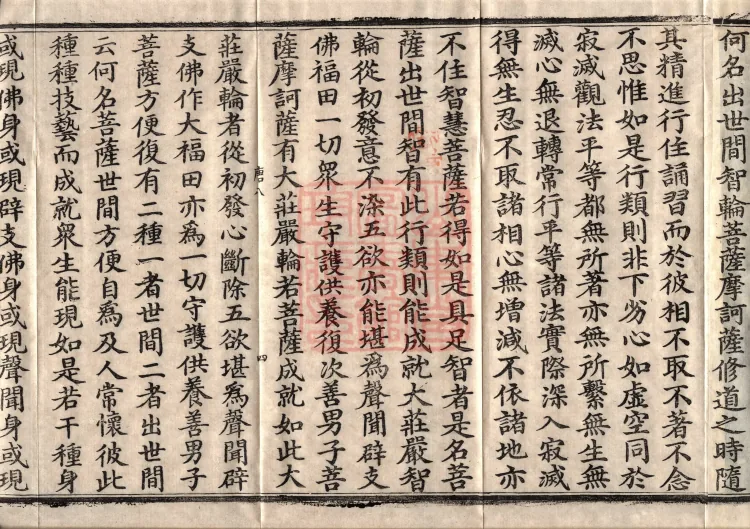 何名出世間智輪菩薩摩訶薩修道之時隨
其精進行住誦習而於彼相不取不著不念
不思惟如是行類則非下劣心如虛空同於
寂滅觀法平等都無所著亦無所繫無生無
滅心無退轉常行平等諸法實際深入寂滅
得無生忍不取諸相心無增減不依諸地亦
不住智慧菩薩若得如是具足智者是名菩
薩出世間智有此行類則能成就大莊嚴智
輪從初發意不染五欲亦能堪為聲聞辟支
佛福田一切眾生守護供養復次善男子菩
薩摩訶薩有大莊嚴輪若菩薩成就如此大
唐八 四
莊嚴輪者從初發心斷除五欲堪為聲聞辟
支佛作大福田亦為一切守護供養善男子
菩薩方便復有二種一者世間二者出世間
云何名菩薩世間方便自為及人常懷彼此
種種技藝而成就眾生能現如是若干種身
或現佛身或現辟支佛身或現聲聞身或現